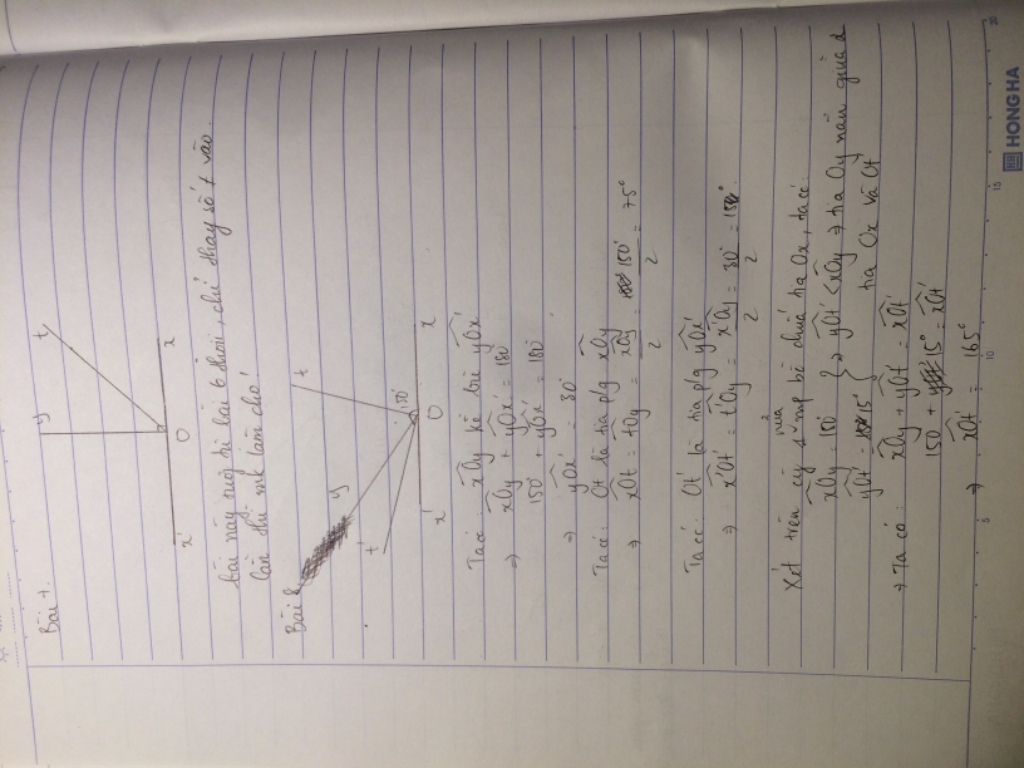 Bài 7.
y
t
x'
O
x
bài này giống bài 6 thôi, chỉ thay số vào.
Bài 8
t
y
t'
150°
x'
O
x
Ta có: xOy kề bù yOx'
⇒ xOy + yOx' = 180°
150° + yOx' = 180°
⇒ yOx' = 30°
Ta có: Ot là tia p/g xOy
⇒ xOt = tOy = xOy/2 = 150°/2 = 75°
Ta có: Ot' là tia p/g yOx'
⇒ x'Ot' = t'Oy = x'Oy/2 = 30°/2 = 15°
Xét trên cùng nửa mp bờ chứa tia Ox, ta có:
xOy = 150°
yOt' = 15°
} ⇒ yOt' < xOy ⇒ tia Oy nằm giữa 2
tia Ox và Ot'
⇒ Ta có: xOy + yOt' = xOt'
150 + 15° = xOt'
⇒ xOt' = 165°
HONG HA
5
10
15
20